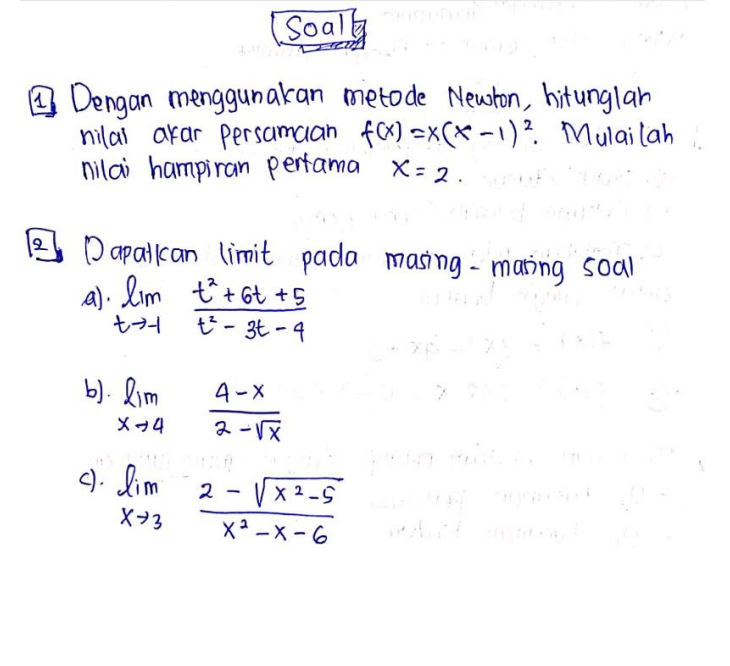 Soal
1 Dengan menggunakan metode Newton, hitunglah
nilai akar persamaan f(x) = x(x-1)². Mulailah
nilai hampiran pertama x = 2.
2 Dapatkan limit pada masing-masing soal
a). lim t² + 6t + 5
t→-1 t² - 3t - 4
b). lim 4-x
x→4 2-√x
c). lim 2 - √x²-5
x→3 x² - x - 6